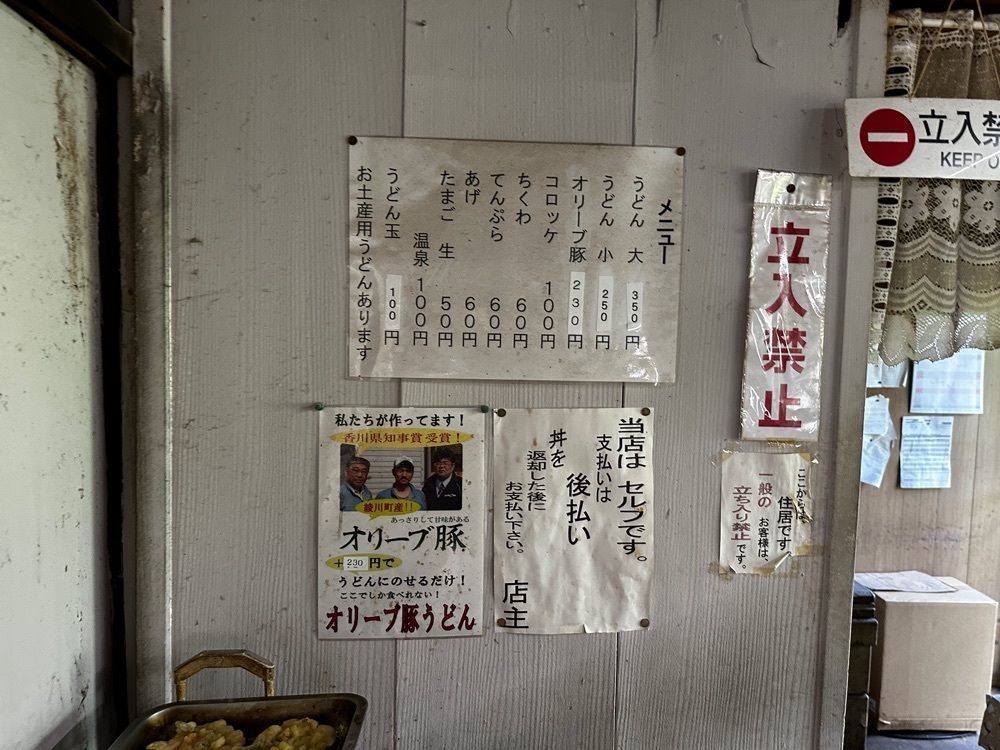 メニュー
うどん 大 350円
うどん 小 250円
オリーブ豚 230円
コロッケ 100円
ちくわ 60円
てんぷら 60円
あげ 60円
たまご 生 50円
温泉 100円
うどん玉 100円
お土産用うどんあります
私たちが作ってます!
香川県知事賞 受賞!
綾川町産!!
あっさりして甘味がある
オリーブ豚
+230円で
うどんにのせるだけ!
ここでしか食べれない!
オリーブ豚うどん
当店は セルフです。
支払いは
後払い
丼を
返却した後に
お支払い下さい。
店主
立入禁止
ここからは
住居です。
お客様は、
一般の
立ち入り禁止です。
立入禁
KEEP O